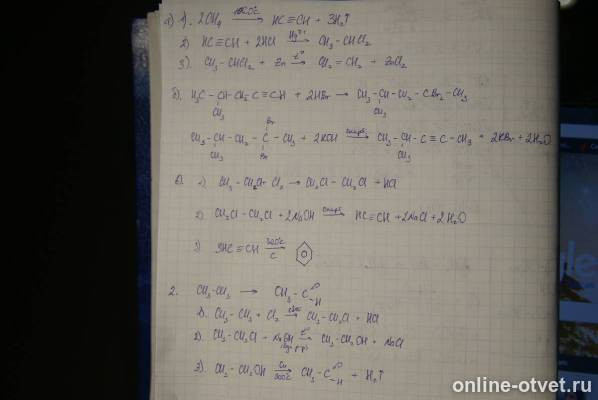 а) 1). 2CH₄ 1500°C → HC≡CH + 3H₂↑
2) HC≡CH + 2HCl Hg²⁺ → CH₃ – CHCl₂
3). CH₃ – CHCl₂ + Zn t° → CH₂ = CH₂ + ZnCl₂
б) H₃C – CH – CH₂ C≡CH + 2HBr → CH₃ – CH – CH₂ – CBr₂ – CH₃
CH₃ CH₃
Br
CH₃ – CH – CH₂ – C – CH₃ + 2KOH спирт. → CH₃ – CH – C ≡ C – CH₃ + 2KBr + 2H₂O
CH₃ Br CH₃
в) 1) CH₃ – CH₂Cl Cl₂ → CH₂Cl – CH₂Cl + HCl
2) CH₂Cl – CH₂Cl + 2NaOH спирт. → HC≡CH + 2NaCl + 2H₂O
3) 3HC≡CH C →
2. CH₃–CH₃ → CH₃ – C O H
1) CH₃ – CH₃ + Cl₂ свет → CH₃ – CH₂Cl + HCl
2). CH₃ – CH₂Cl – NaOH t° → CH₃–CH₂OH + NaCl
3) CH₃ – CH₂OH Cu 300°C → CH₃ – C O H + H₂↑
online-otvet.ru